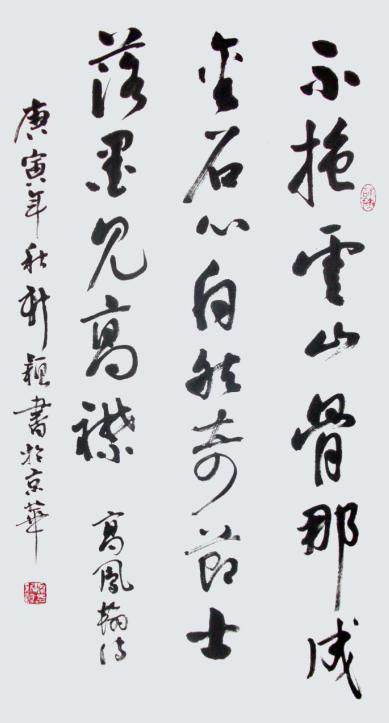 不抱雲山骨那成
金石心自然奇節士
落墨見高襟
高鳳翰詩
庚寅年秋穎書於京華